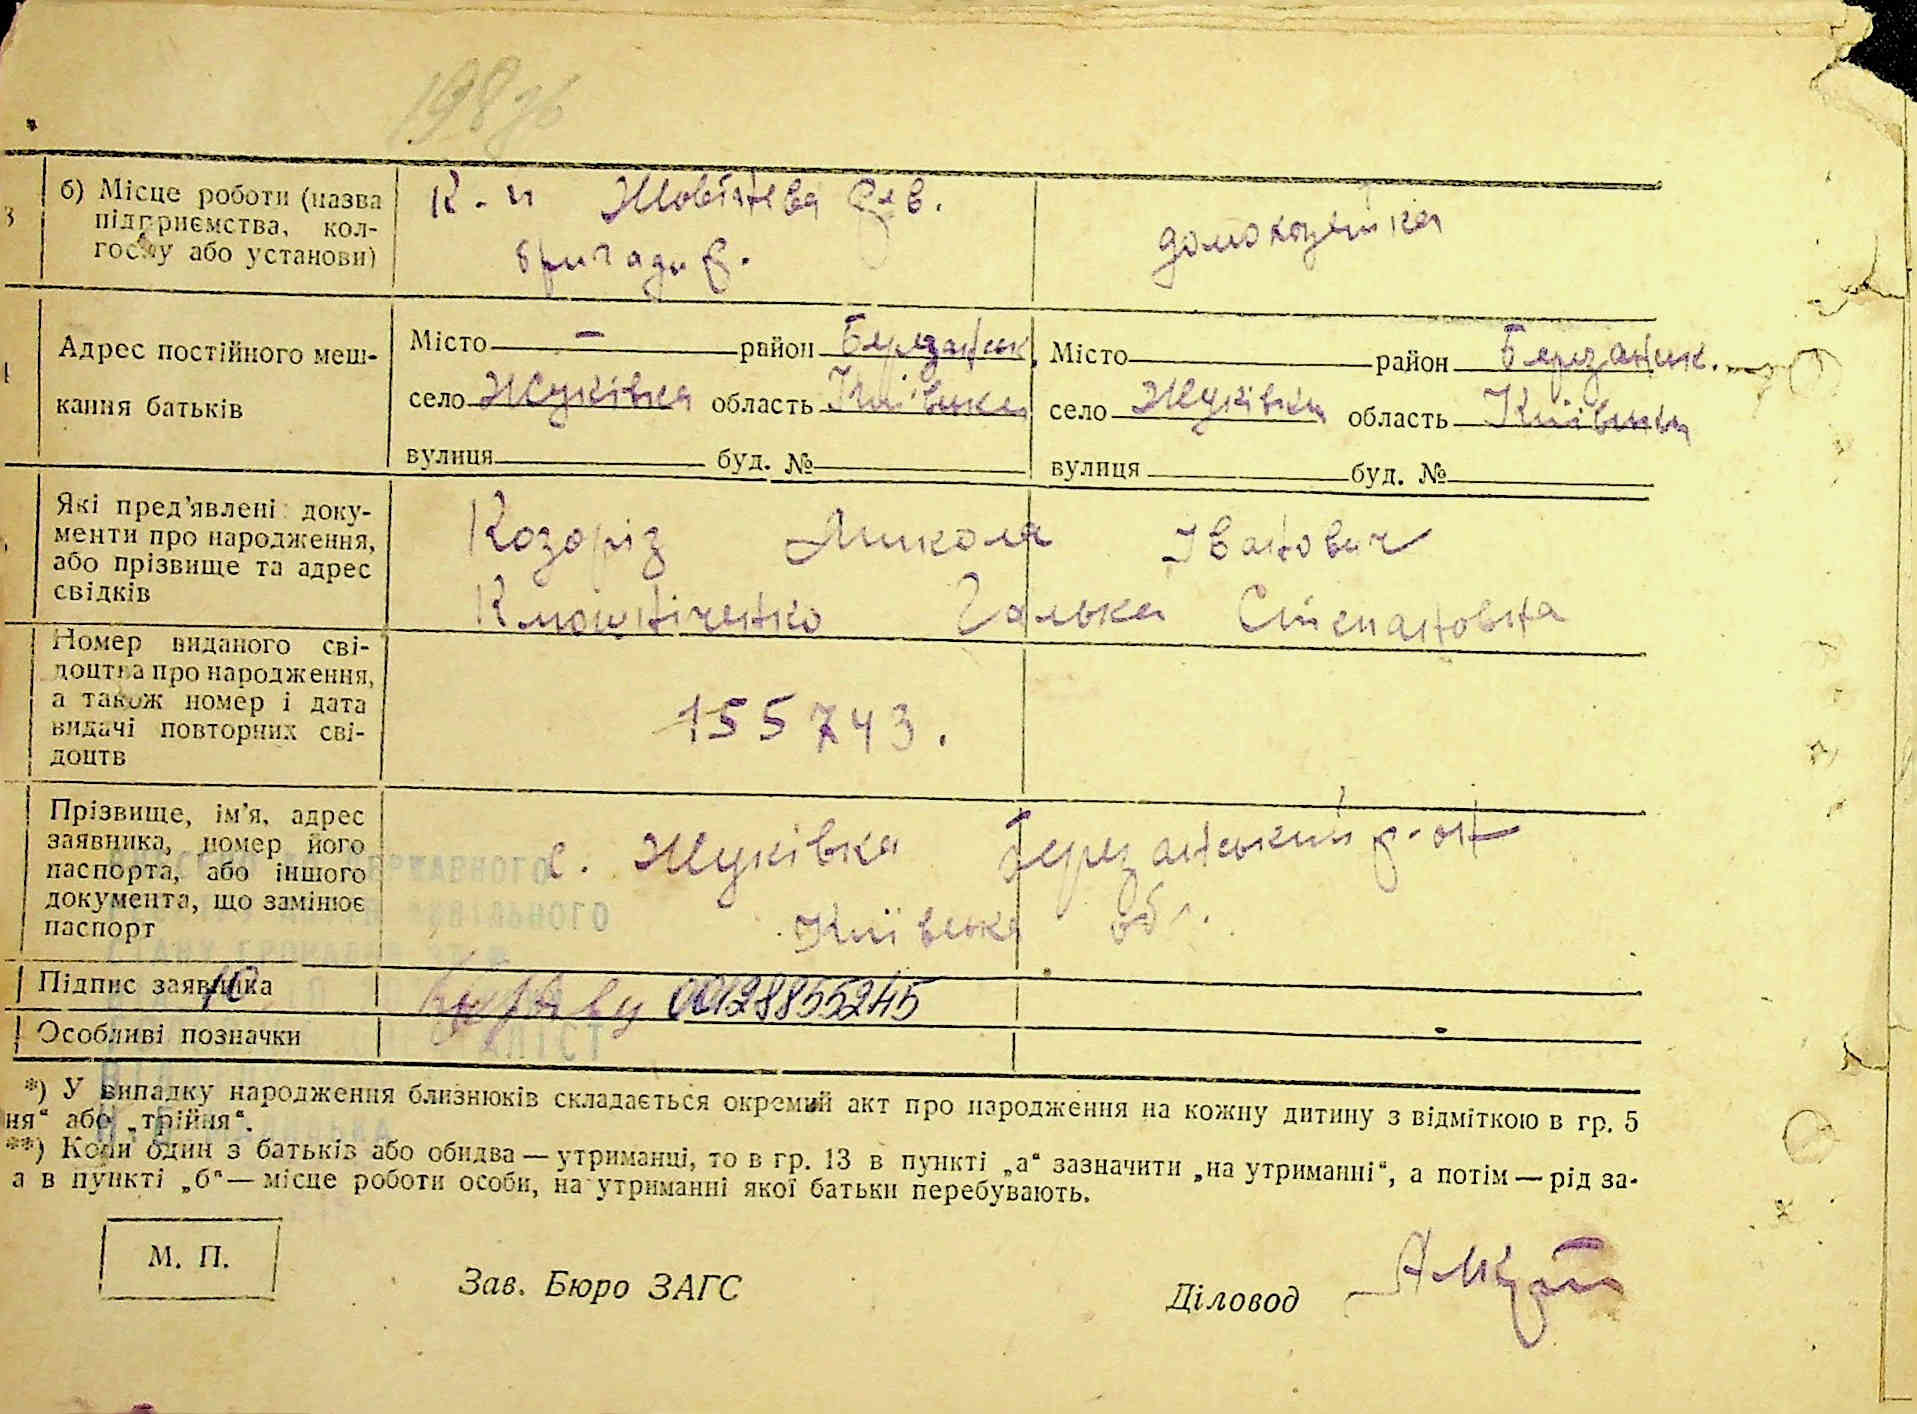 198
б) Місце роботи (назва
підприємства, кол-
госпу або установи)
К-п Жовтнева Рев.
бригадир.
домохозяйка
Адрес постійного меш-
кання батьків
Місто — район Березанськ.
село Жуківка область Київська
вулиця буд. №
Місто район Березанськ.
село Жуківка область Київська
вулиця буд. №
Які пред'явлені документи про народження, або прізвище та адрес свідків
Козоріз Микола Іванович
Галька Степановна
Номер виданого сві-
доцтва про народження,
а також номер і дата
видачі повторних сві-
доцтв
155743.
Прізвище, ім'я, адрес
заявника, номер його
паспорта, або іншого
документа, що замінює
паспорт
с. Жуківка Березанський р-он
Київська обл.
Підпис заявника
00128855245
Особливі позначки
*) У випадку народження близнюків складається окремий акт про народження на кожну дитину з відміткою в гр. 5
ня“ або „трійня“.
**) Коли один з батьків або обидва — утриманці, то в гр. 13 в пункті „а“ зазначити „на утриманні“, а потім — рід за-
а в пункті „б“ — місце роботи особи, на утриманні якої батьки перебувають.
М. П.
Зав. Бюро ЗАГС
Діловод